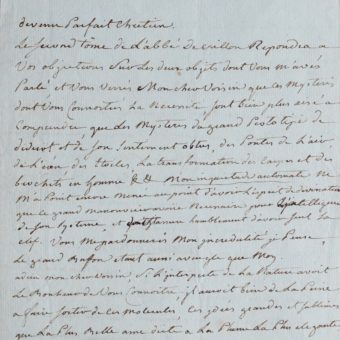 devenir Parfait Chretien.
Le second tome de L'abbé de Crillon Repondra a
Vos objections Sur Les deux objets dont Vous m'avés
Parlé et Vous Verres Mon cher Voisin que ces Mysteres
dont Vous Connoitrés La Necessité sont bien plus aisé a
Comprendre que Les Mysteres du grand
de Diderot et de Son Sentiment obtus, des Pontes de L'air
de L'eau des Etoiles La transformation des Carpes et des
brochets en homme &&. Mon inquietude automate Ne
M'a Point encore Mené au point d'avoir L'esprit
que le grand manouvrier Necessaire pour
de Son Systeme, et humblement d'avoir Seul La
clef. Vous Me pardonnerés Mon incredulité je Pense,
Le grand Buffon etoit aussi aveugle que Moy
adieu mon cher Voisin, Si L'interprete de La Nature avoit
Le Bonheur de Vous Connoitre, il auroit bien de La Peine
a faire Sortir de ces Molecules, ces idées grandes et sublimes
que La Plus Belle ame dicte a La Plume La plus elegante